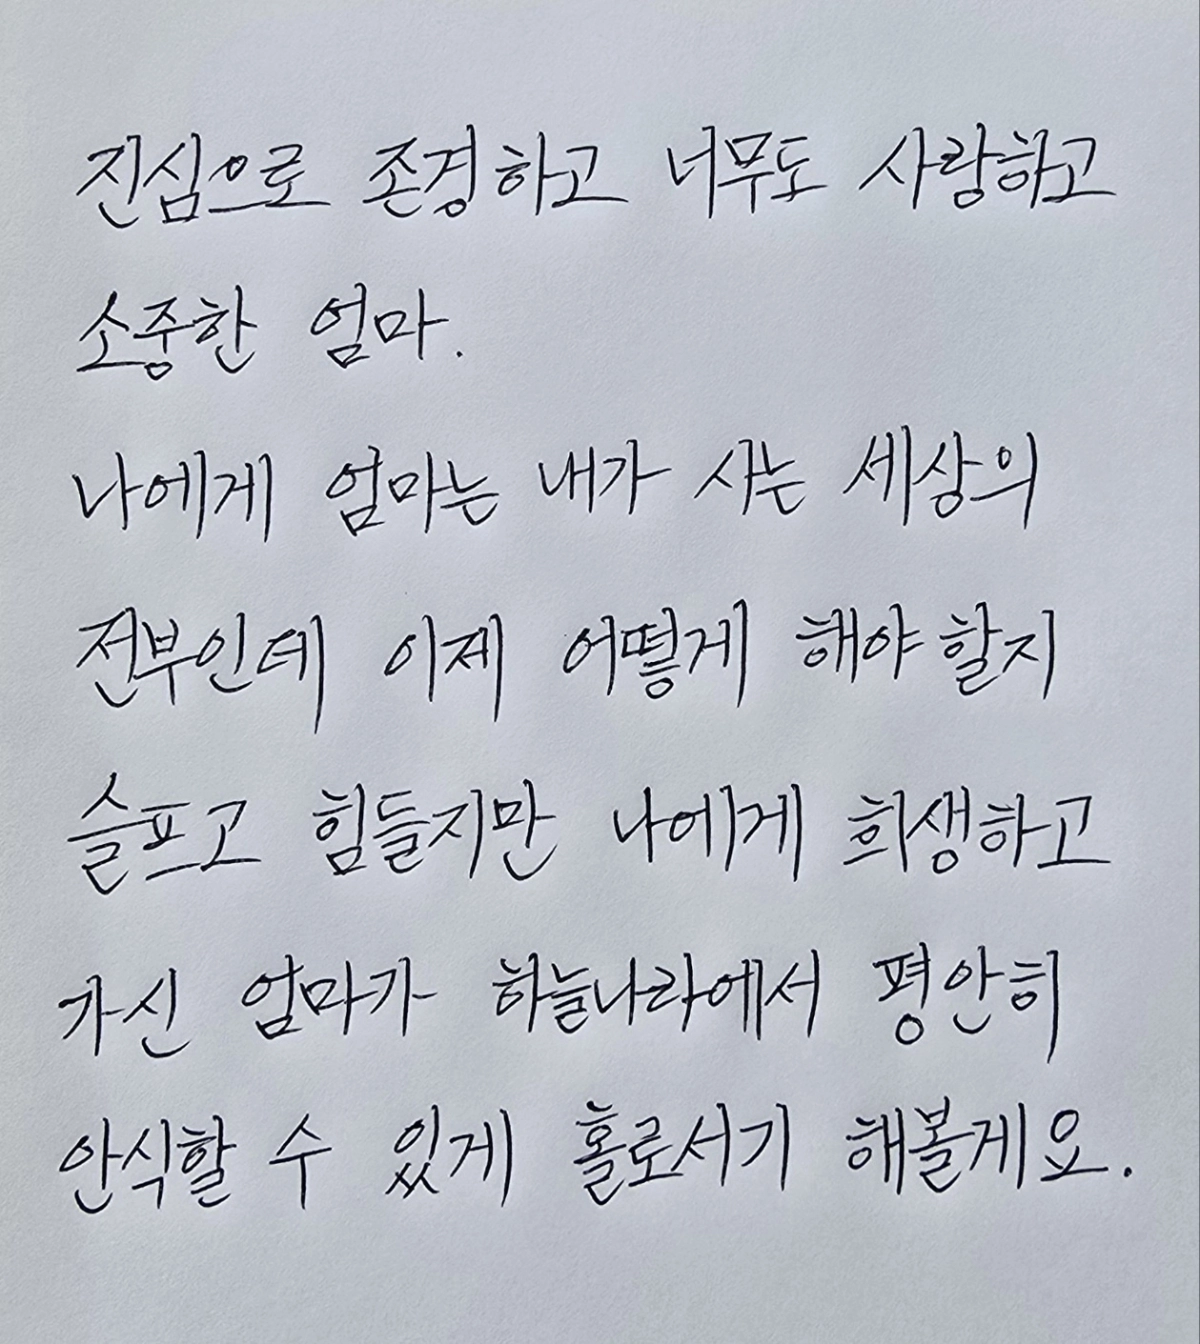 진심으로 존경하고 너무도 사랑하고
소중한 엄마.
나에게 엄마는 내가 사는 세상의
전부인데 이제 어떻게 해야할지
슬프고 힘들지만 나에게 희생하고
가신 엄마가 하늘나라에서 평안히
안식할 수 있게 홀로서기 해볼게요.